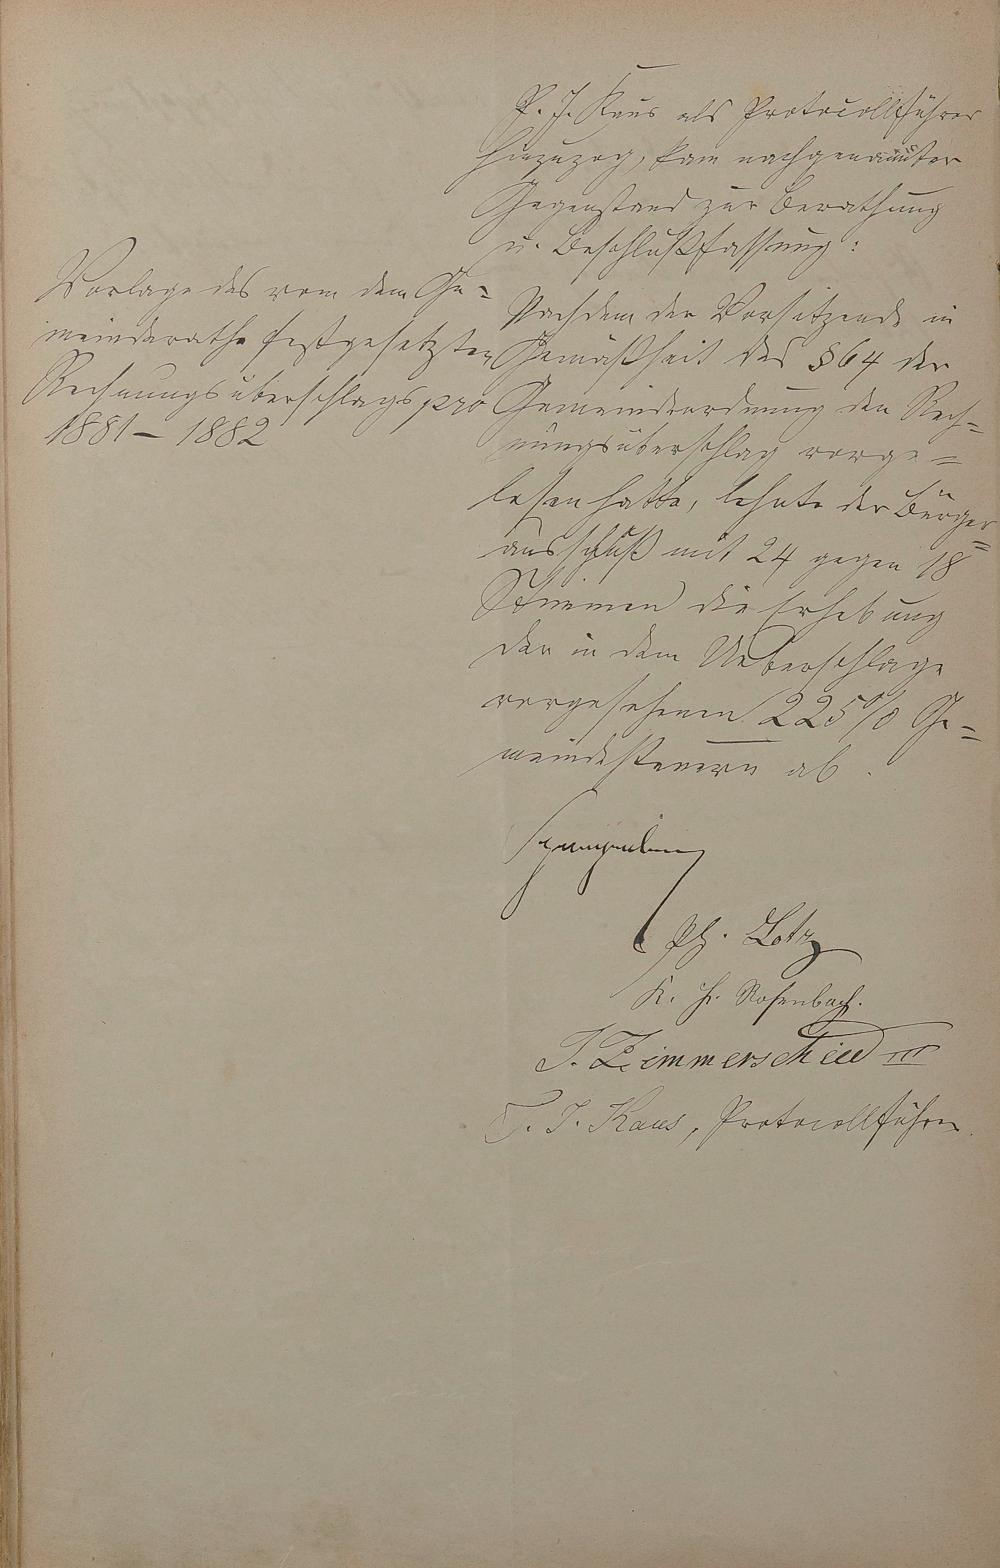 P. J. Kaus als Protocollführer
hinzuzog, kam nachgenannter
Gegenstand zur Berathung
u. Beschlußfassung:
Vorlage des von dem Ge=
meinderathe festgesetzten
Rechnungsüberschlags pro
1881 – 1882
Nachdem der Vorsitzende in
Gemäßheit des § 64 der
Gemeindeordnung den Rech=
nungsüberschlag vorge=
lesen hatte, lehnte der Bürger=
ausschuß mit 24 gegen 18
Stimmen die Erhebung
der in dem Ueberschlage
vorgesehenen 225% Ge=
meindesteuern ab.
Ph. Lotz
K. H. Rosenbach.
J. Zimmerschied III
P. J. Kaus, Protocollführer.